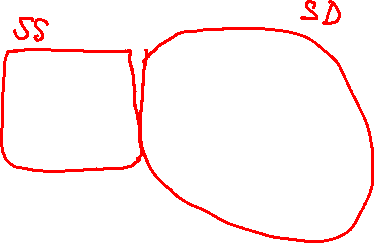 SS
SD